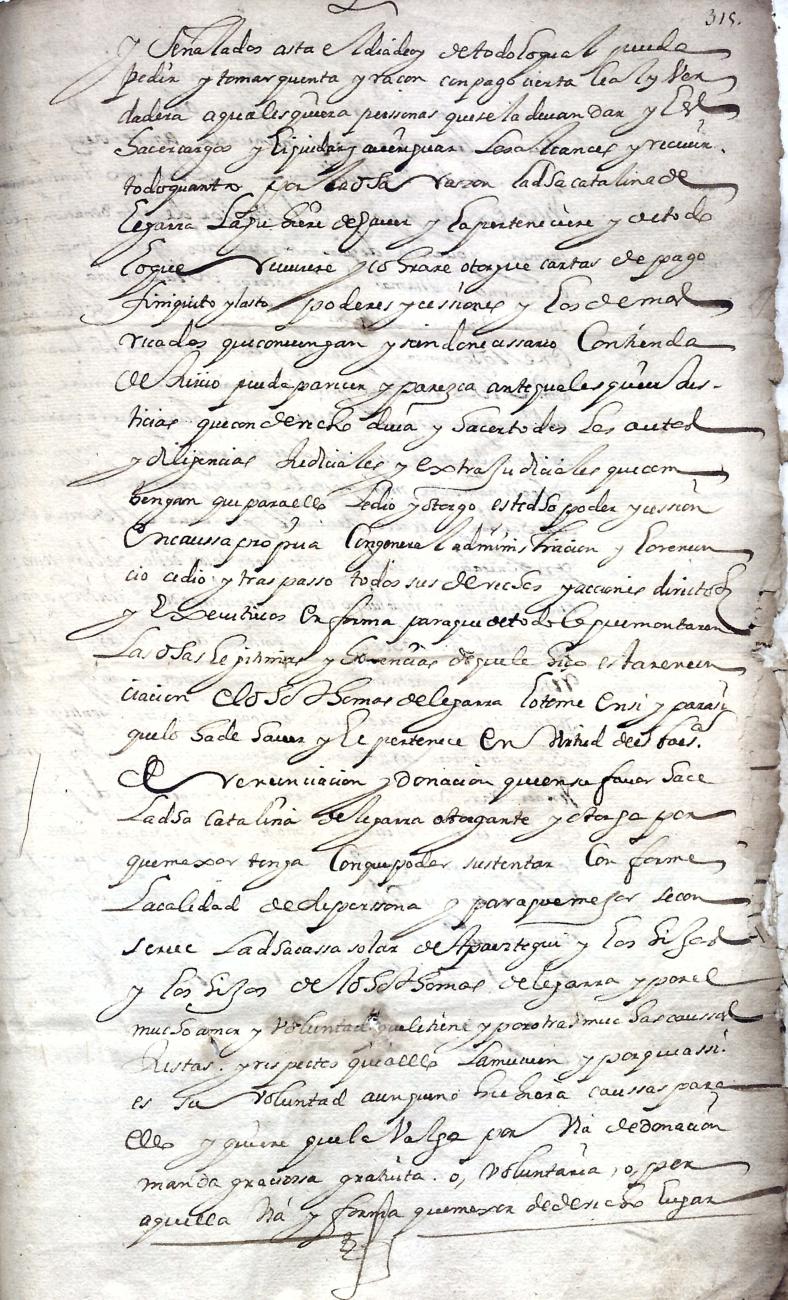 315.
y señalados asta el dia de oy de todo lo qual pueda
pedir y tomar quenta y racon con pago cierta leal y ver
dadera a qualesquiera personas que se la devan dar y
hacer cargos y liquidar y averiguar los alcances y recivir
todo quanto por la dha racon la dha catalina de
legarra la pu diere de haver y la perteneciere y de todo
lo que reciviere y cobrare otorgue cartas de pago
finiquito y lasto poderes y cessiones y los demas
recados que convengan y siendo necessario Contienda
de Juicio pueda parecer y paresca ante qualesquier Jus-
ticias que con derecho deva y hacer todos los autos
y diligencias Judiciales y extrajudiciales que con
bengan que para ello le dio y otorgo este dho poder y cession
En caussa propria Con general administracion y lo renun
cio cedio y traspasso todos sus derechos y acciones directos
y Executivos en forma para que de todo lo que montaren
Las dhas lejitimas y herencias de que le hiço esta renun
ciacion el dho Thomas de legarra lo tome en si y para si
que lo ha de haver y le pertenece en Virtud de esta es.ra
de renunciacion y donacion que en su favor hace
La dha catalina de legarra otorgante y otorga por
que mexor tenga Con que poder sustentar Con forme
La calidad de su persona y para que mejor se con
serve La dha cassa solar de Aparztegui y los hijos
y los hijos de lo dho Thomas de legarra y por el
mucho amor y voluntad que le tiene y por otras muchas caussas
Justas y respectos que a ello La mueven y porque assi
es su voluntad aunque no hubiera caussas para
ello y quiere que le Valga por Via de donacion
manda graciossa gratuita o, voluntaria, o, por
aquella Via y forma que mexor de derecho lugar